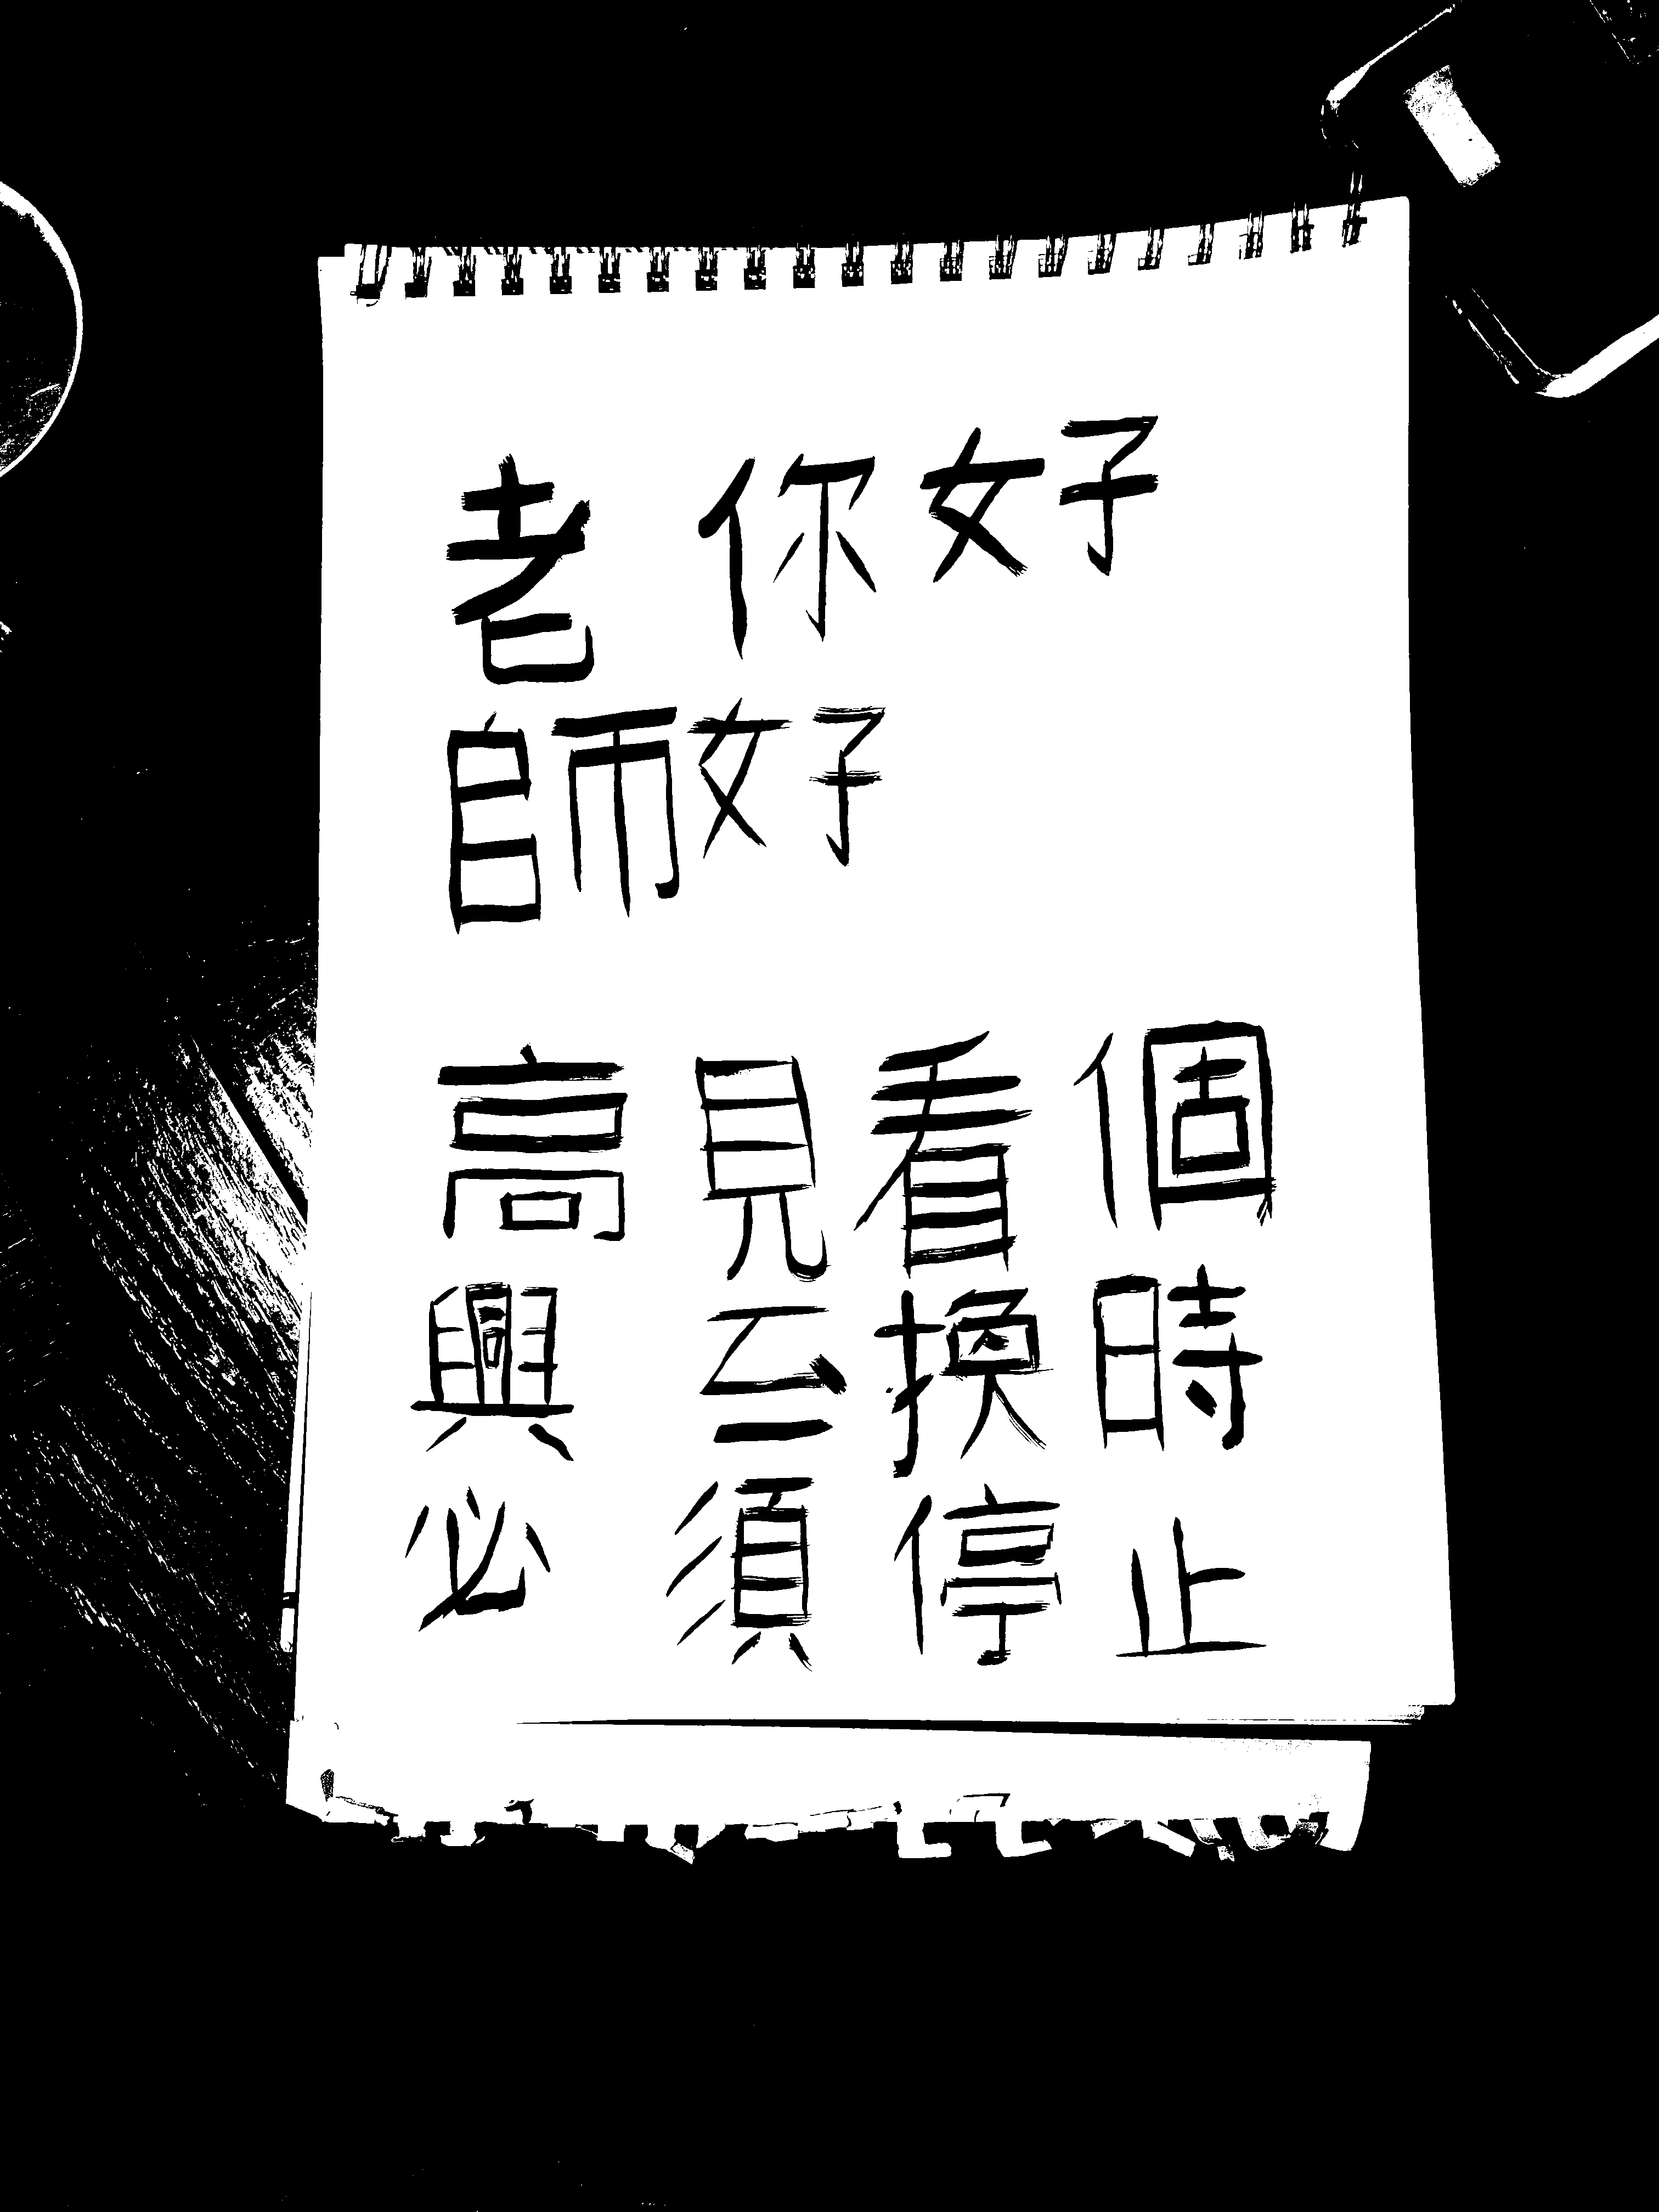 老 你好
師好
高 見 看 個
興 換 時
必 須 停 止